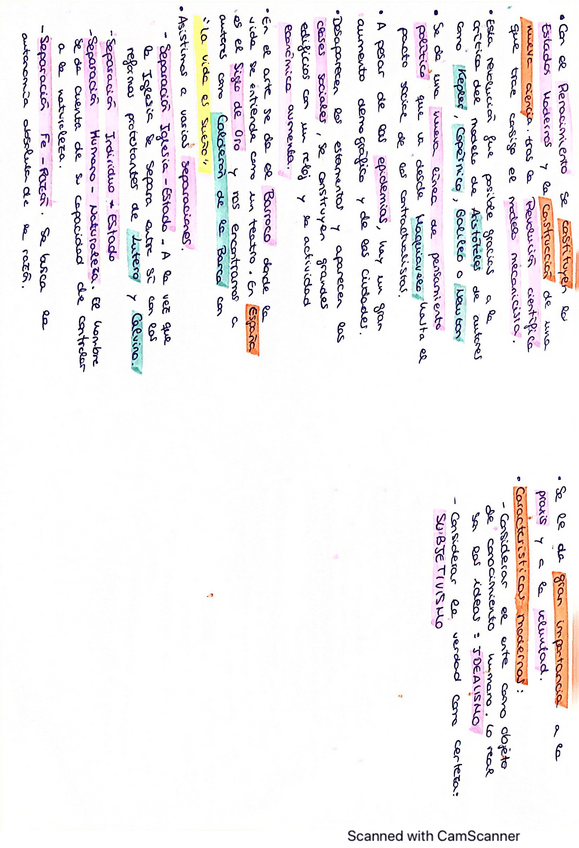 • Con el Renacimiento se constituyen los
Estados Modernos y la construcción de una
nueva ciencia, tras la Revolución científica
que trae consigo el modelo mecanicista.
• Esta revolución fue posible gracias a la
crítica del modelo de Aristóteles de autores
como Kepler, Copérnico, Galileo o Newton
• Se da una nueva línea de pensamiento
político que va desde Maquiavelo hasta el
pacto social de los contractualistas.
• A pesar de las epidemias, hay un gran
aumento demográfico y de las ciudades.
• Desaparecen los estamentos y aparecen las
clases sociales, se construyen grandes
edificios con un reloj y la actividad
económica aumenta.
• En el arte se da el Barroco donde la
vida se entiende como un teatro. En España
es el Siglo de Oro y nos encontramos a
autores como Calderón de la Barca con
"la vida es sueño"
• Asistimos a varias separaciones.
- Separación Iglesia-Estado. A la vez que
la Iglesia se separa entre sí con las
reformas protestantes de Lutero y Calvino.
- Separación Individuo - Estado
- Separación Humano - Naturaleza. El hombre
se da cuenta de su capacidad de controlar
a la naturaleza.
- Separación Fe - Razón. Se busca la
autonomía absoluta de la razón.
• Se le da gran importancia a la
praxis y a la voluntad.
• Características modernas:
- Considerar el ente como objeto
de conocimiento humano. Lo real
son las ideas: IDEALISMO
- Considerar la verdad como certeza:
SUBJETIVISMO
Scanned with CamScanner